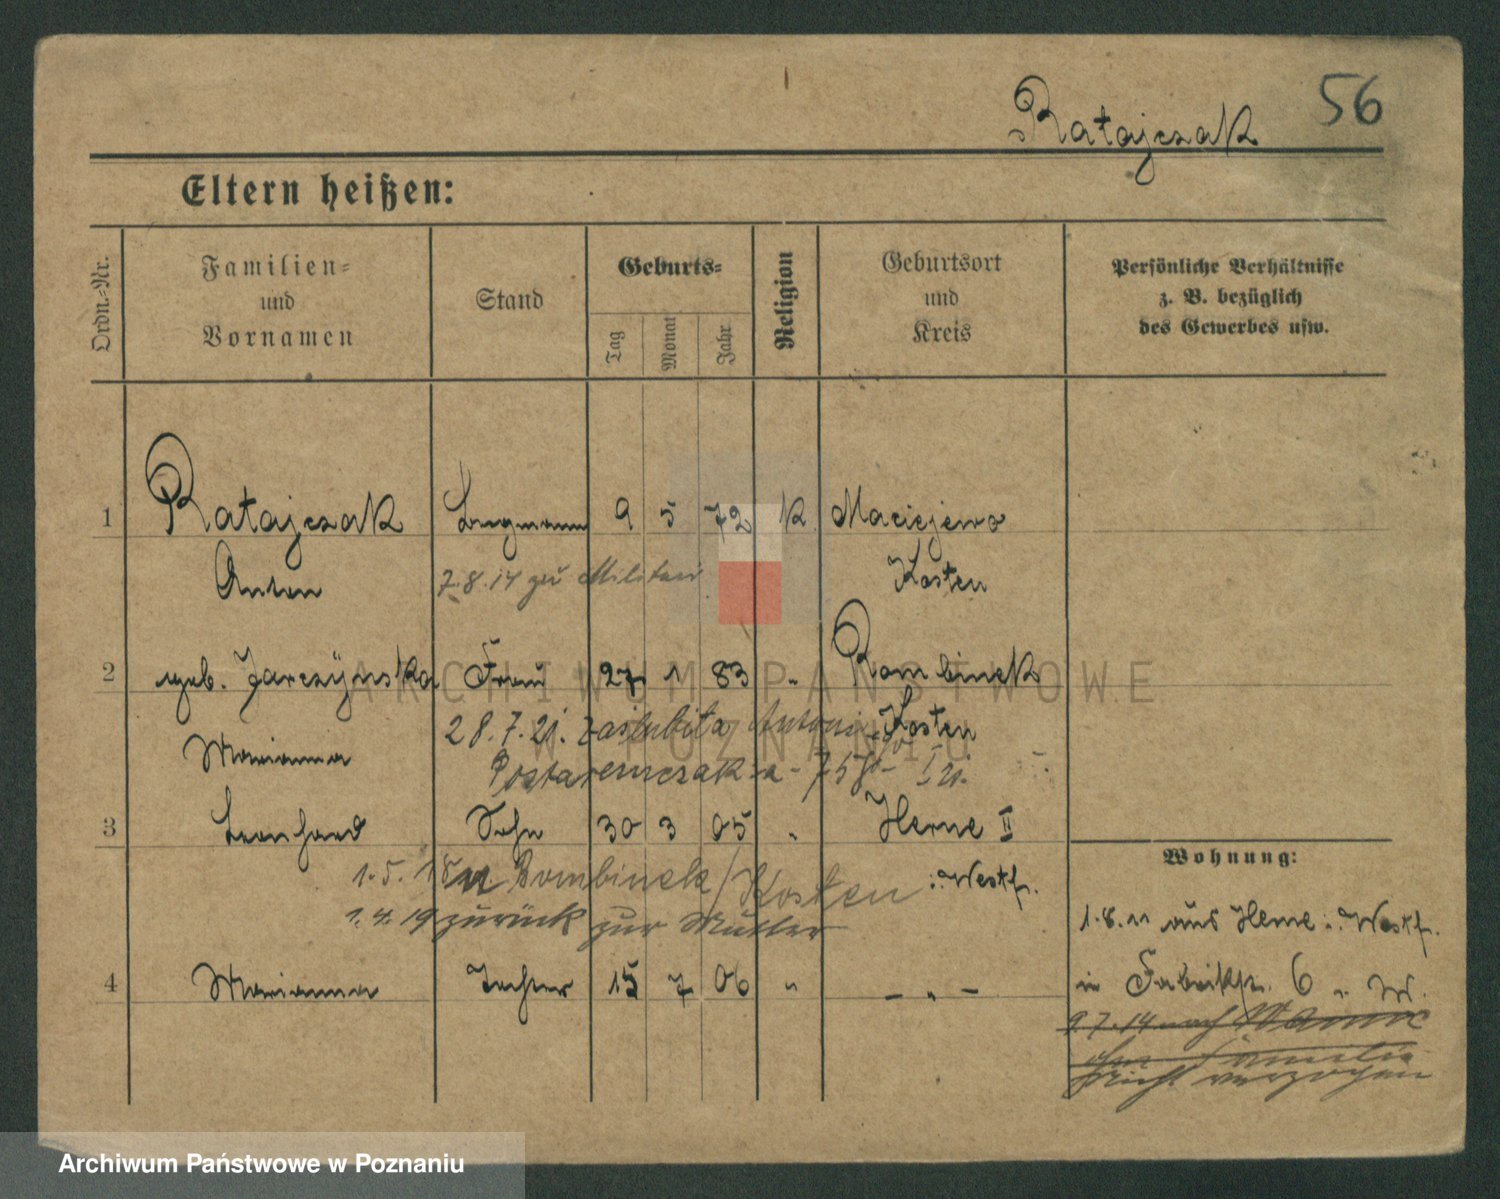 56
Ratajczak
Eltern heißen:
Ordn.-Nr.
Familien-
und
Vornamen
Stand
Geburts-
Tag
Monat
Jahr
Religion
Geburtsort
und
Kreis
Persönliche Verhältnisse
z. B. bezüglich
des Gewerbes usw.
1 Ratajczak Bergmann 9 5 72 K Maciejewo
Anton Kosten
7.8.14 zu Militär
2 geb. Jarczynska Frau 27 1 83 " Rombinek
Marianna Kosten
28.7.21. zaślubiła Antoni
3 Leonhard Sohn 30 3 05 " Herne II
i. Westf.
1.5.18 n Bombinek/Kosten
1.4.19 zurück zur Mutter
4 Marianna Tochter 15 7 06 " — " —
Wohnung:
1.8.11 aus Herne i. Westf.
in Fabrikstr. 6 
9.7.14 nach
ohne Familie
nicht verzogen
ARCHIWUM PAŃSTWOWE
W POZNANIU
Archiwum Państwowe w Poznaniu